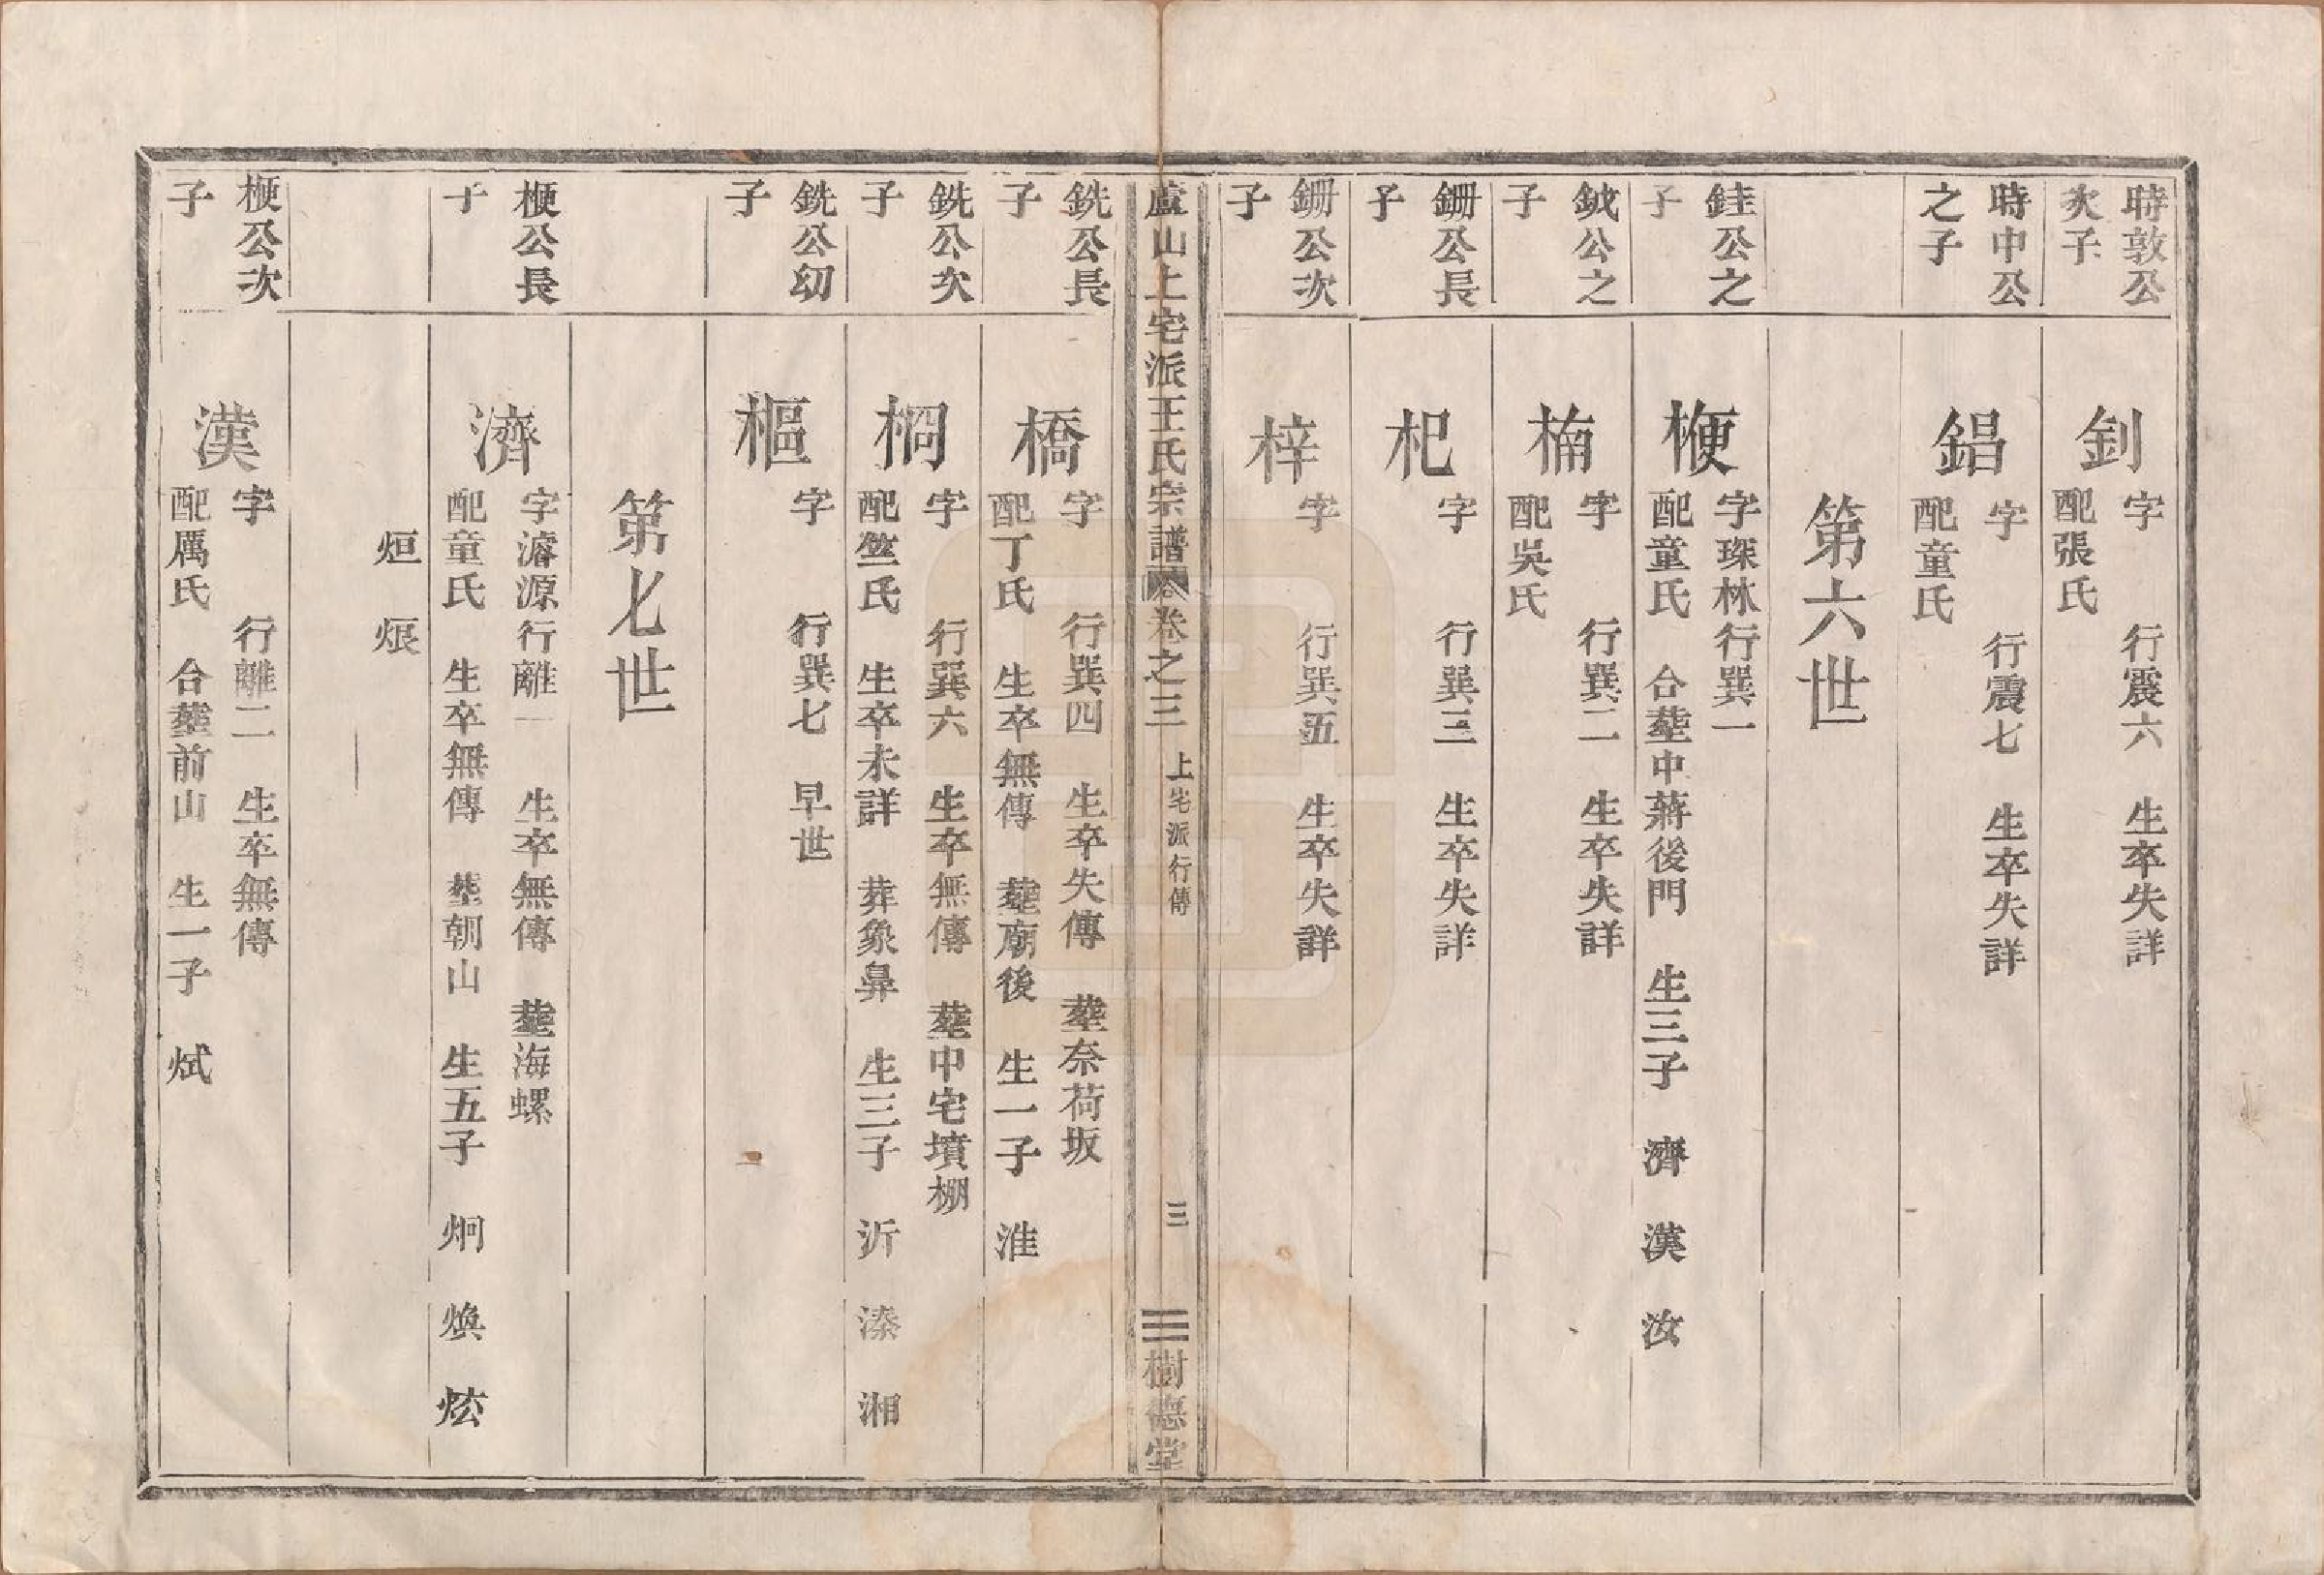 時敦公
次子
釗
字 行震六 生卒失詳
配張氏
時中公
之子
錩
字 行震七 生卒失詳
配童氏
第六世
銈公之
子
楩
字琛林行巽一
配童氏 合塟中蔣後門 生三子 濟 漢 汝
鉞公之
子
楠
字 行巽二 生卒失詳
配吳氏
鉶公長
子
杞
字 行巽三 生卒失詳
鉶公次
子
梓
字 行巽五 生卒失詳
盧山上宅派王氏宗譜 卷之三 上宅派行傳 三 樹德堂
銑公長
子
橋
字 行巽四 生卒失傳 塟奈荷坂
配丁氏 生卒無傳 塟廟後 生一子 淮
銑公次
子
棡
字 行巽六 生卒無傳 塟中宅墳棚
配竺氏 生卒未詳 葬象鼻 生三子 沂 溱 湘
銑公幼
子
樞
字 行巽七 早世
第七世
楩公長
子
濟
字濬源行離一 生卒無傳 塟海螺
配童氏 生卒無傳 塟朝山 生五子 炯 煥 炫
烜 烺
楩公次
子
漢
字 行離二 生卒無傳
配厲氏 合塟前山 生一子 烒